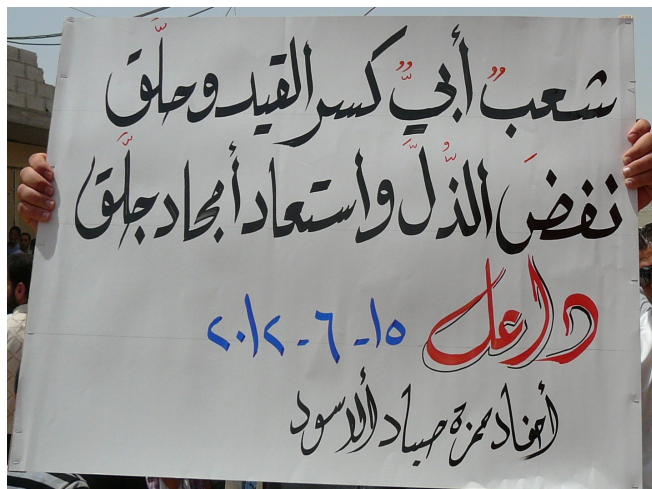 شعبٌ أبيٌّ كسر القيد و حلّق
نفضَ الذُّلَّ و استعاد أمجاد جلَّق
داعل ١٥-٦-٢٠١٢
أحفاد حمزة صياد الاسود